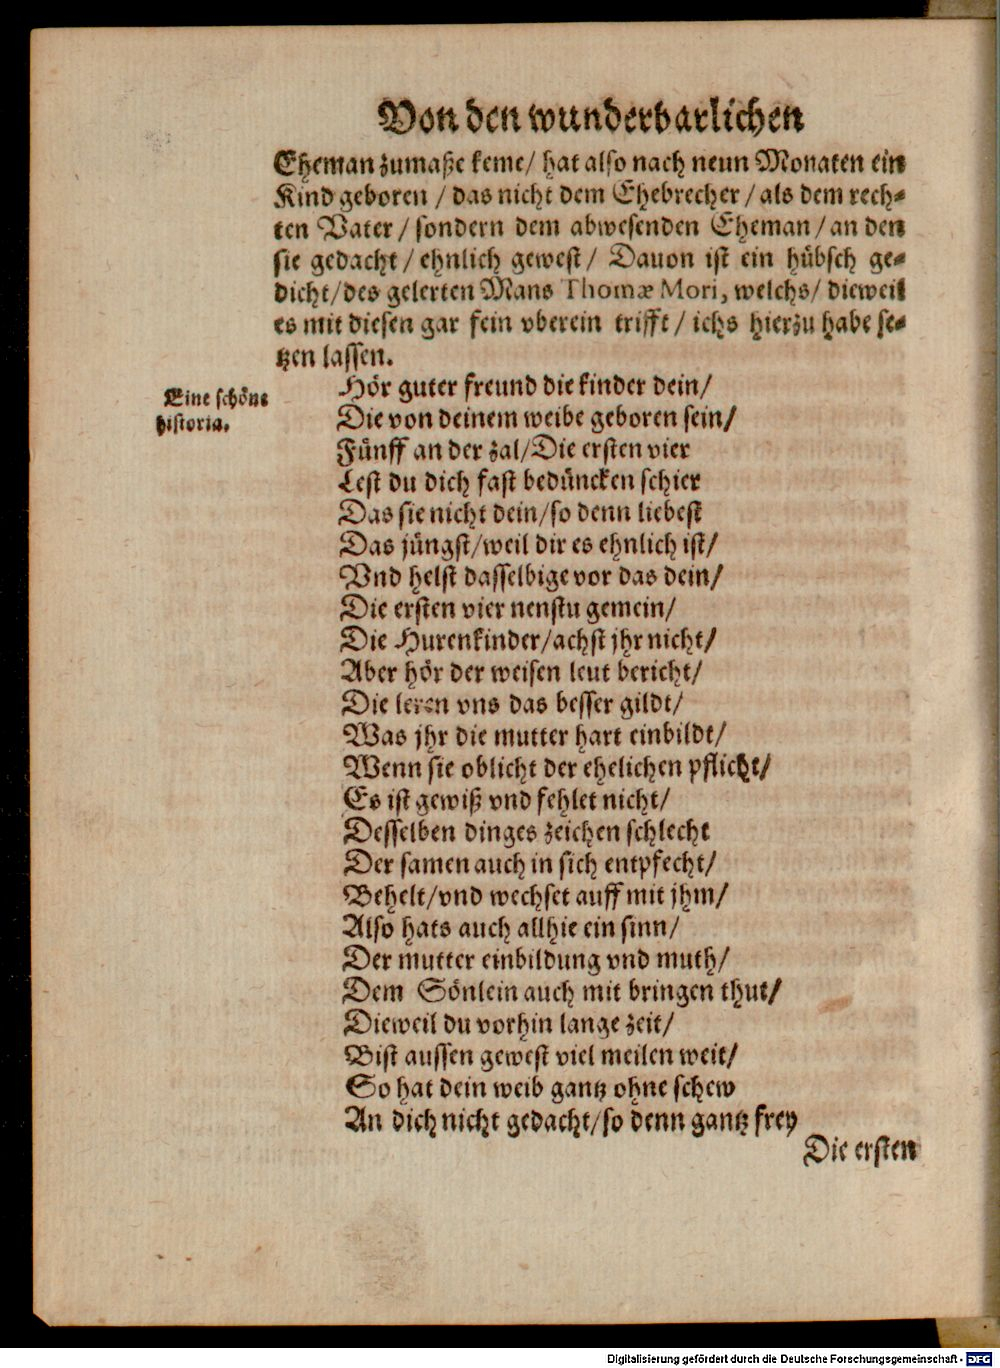 Von den wunderbarlichen
Eheman zumaße keme/ hat also nach neun Monaten ein
Kind geboren / das nicht dem Ehebrecher / als dem rech⸗
ten Vater / sondern dem abwesenden Eheman / an den
sie gedacht / ehnlich gewest / Dauon ist ein hübsch ge⸗
dicht/ des gelerten Mans Thomæ Mori, welchs/ dieweil
es mit diesen gar fein vberein trifft / ichs hierzu habe se⸗
tzen lassen.
Eine schöne
historia.
Hör guter freund die kinder dein/
Die von deinem weibe geboren sein/
Fünff an der zal/Die ersten vier
Lest du dich fast bedüncken schier
Das sie nicht dein/so denn liebest
Das jüngst/weil dir es ehnlich ist/
Vnd helst dasselbige vor das dein/
Die ersten vier nenstu gemein/
Die Hurenkinder/achst jhr nicht/
Aber hör der weisen leut bericht/
Die leren vns das besser gildt/
Was jhr die mutter hart einbildt/
Wenn sie oblicht der ehelichen pflicht/
Es ist gewiß vnd fehlet nicht/
Desselben dinges zeichen schlecht
Der samen auch in sich entpfecht/
Behelt/vnd wechset auff mit jhm/
Also hats auch allhie ein sinn/
Der mutter einbildung vnd muth/
Dem Sönlein auch mit bringen thut/
Dieweil du vorhin lange zeit/
Bist aussen gewest viel meilen weit/
So hat dein weib gantz ohne schew
An dich nicht gedacht/so denn gantz frey
Die ersten
Digitalisierung gefördert durch die Deutsche Forschungsgemeinschaft - DFG